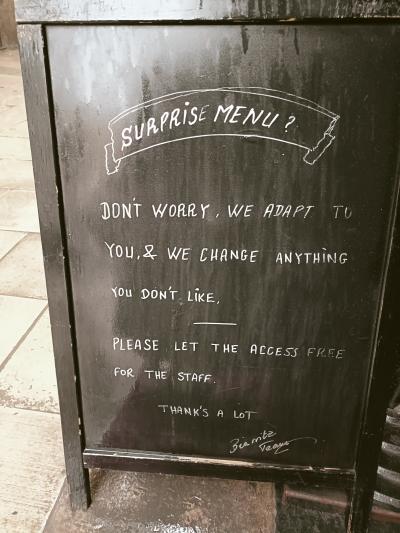 SURPRISE MENU?
DON'T WORRY, WE ADAPT TO
YOU, & WE CHANGE ANYTHING
YOU DON'T LIKE,
PLEASE LET THE ACCESS FREE
FOR THE STAFF.
THANK'S A LOT
Biarritz
Team